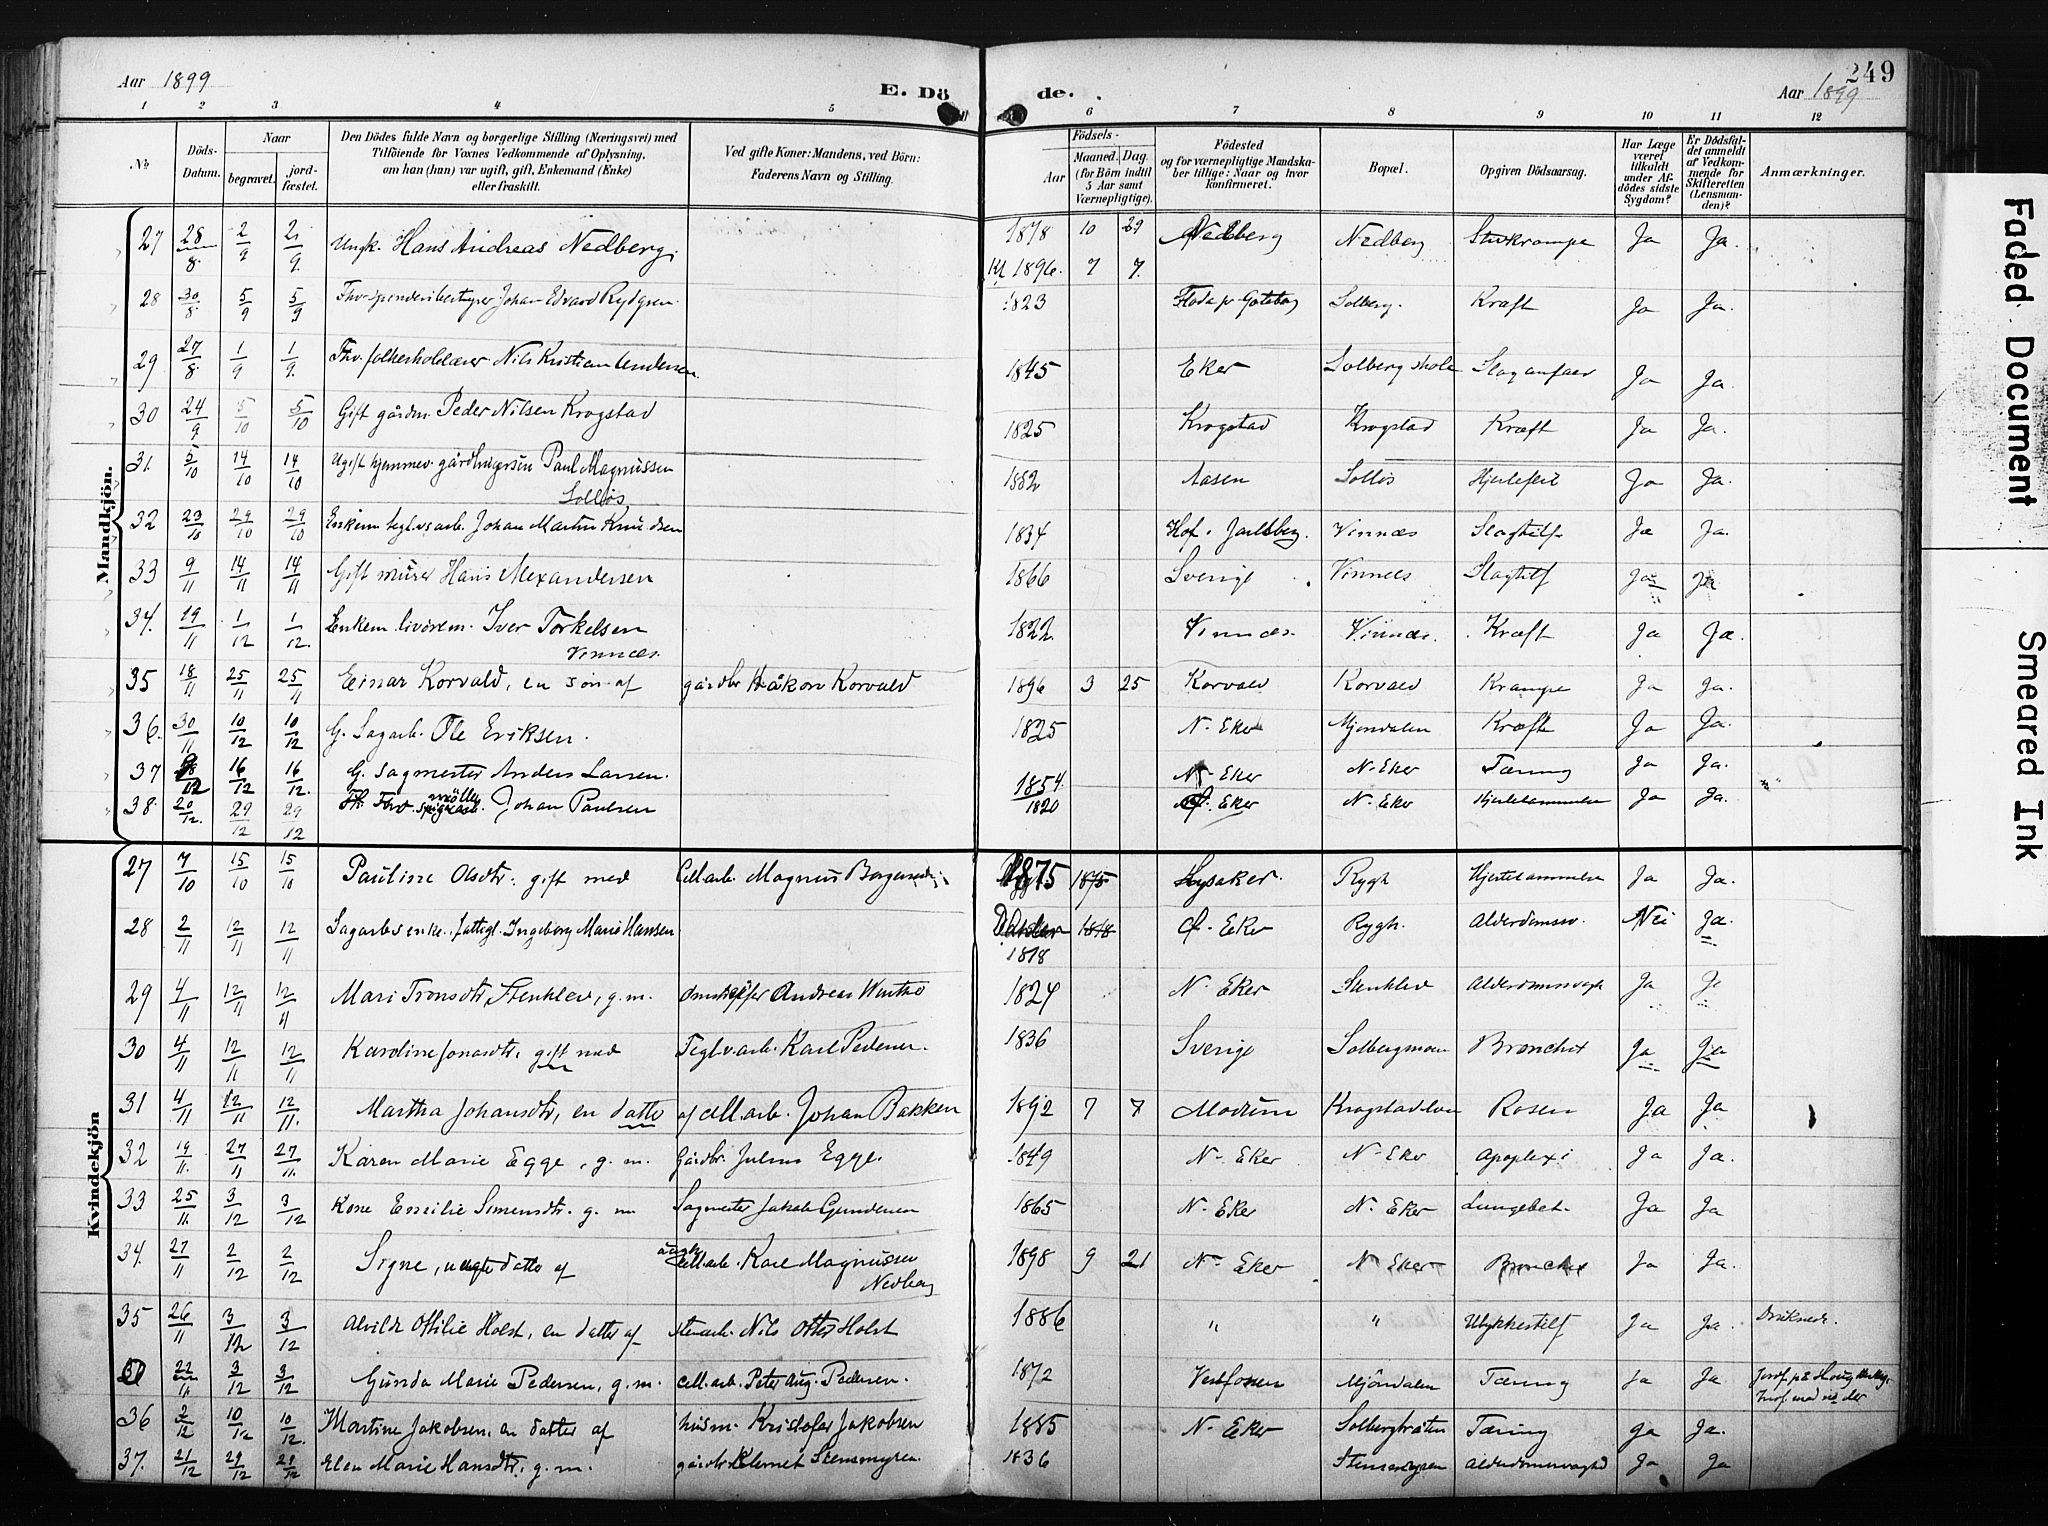 Aar 1899
E. Döde.
249
Aar 1899
1 2 3 4 5 6 7 8 9 10 11 12
No
Döds-Datum.
Naar
begravet.
jordfæstet.
Den Dödes fulde Navn og borgerlige Stilling (Næringsvei) med Tilföiende for Voxnes Vedkommende af Oplysning, om han (hun) var ugift, gift, Enkemand (Enke) eller fraskilt.
Ved gifte Koner: Mandens, ved Börn: Faderens Navn og Stilling.
Födsels-
Aar
Maaned. Dag. (for Börn indtil 5 Aar samt Værnepligtige).
Födested og for værnepligtige Mandskaber tillige: Naar og hvor konfirmeret.
Bopæl.
Opgiven Dödsaarsag.
Har Læge været tilkaldt under Afdödes sidste Sygdom?
Er Dödsfaldet anmeldt af Vedkommende for Skifteretten (Lensmanden)?
Anmærkninger.
Mandkjön.
27 28/8 2/9 2/9 Ungk. Hans Andreas Nedberg 1878 10 29 Nedberg Nedberg Ja Ja.
1896. 7 7.
28 30/8 5/9 5/9 Johan Edvard Rydgren 1823 Solberg. Kræft Ja Ja.
29 27/8 1/9 1/9 Fhv. folkeskolelærer Nils Kristian Andersen 1845 Eker Solberg skole Slaganfald Ja Ja.
30 24/9 5/10 5/10 Gift gårdm. Peder Nilsen Krogstad 1825 Krogstad Krogstad Kræft Ja Ja.
31. 5/10 14/10 14/10 Ugift hjemmev. Paul Magnussen Solløs 1882 Aasen Solløs Hjertefeil Ja Ja.
32 23/10 29/10 29/10 Enkem. teglv.arb. Johan Martin Knudsen 1834 Hof. Jarlsberg. Vinnæs Slagtilf. Ja Ja.
33 9/11 14/11 14/11 Gift murer Hans Alexandersen 1866 Sverige Vinnæs Slagtilf Ja Ja
34. 19/11 1/12 1/12. Enkem. Iver Torkelsen Vinnæs. 1822 Vinnæs. Vinnæs. Kræft Ja Ja.
35 18/11 25/11 25/11 Einar Korvald, en søn af gårdbr. Håkon Korvald 1896 3 25 Korvald Korvald Krampe Ja Ja.
36. 30/11 10/12 10/12 G. Sagarb. Ole Eriksen. 1825 N. Eker Mjøndalen Kræft Ja Ja.
37 16/12 16/12. G. Sagmester Anders Larsen. 1854 N. Eker N. Eker Tæring Ja Ja.
38. 20/12. 29/12 29/12 Fhv. Johan Paulsen 1820 Eker N. Eker Hjertelammelse Ja Ja.
Kvindekjön
27 7/10 15/10 15/10 Pauline Olsdtr. gift med Cell.arb. Magnus 1875 1875 Lysaker. Rygh Hjertelammelse Ja Ja.
28 2/11 12/11 12/11 Sagarb.s enke, fattigl. Ingeborg Marie Hansen 1818 1818 Eker Rygh. Alderdomssv. Nei Ja.
29 4/11 12/11 12/11 Mari Tronsdtr. Stenklev, g. m. Andreas 1824 N. Eker Stenklev Alderdomssvagh Ja Ja
30 4/11 12/11 12/11 Karoline Jonasdtr. gift med Teglv.arb. Karl Pedersen. 1836 Sverige Solbergmoen Bronchit Ja Ja
31 4/11 12/11 12/11. Martha Johansdtr, en datter af cell.arb. Johan Bakken 1892 7 7 Modum Rosen Ja Ja
32 19/11. 27/11 27/11. Karen Marie Egge, g. m. Gårdbr. Julius Egge. 1849 N. Eker N. Eker Apoplexi Ja Ja.
33 25/11. 3/12 3/12 Emilie Simensdtr. g. m Sagmester Jakob Gundersen 1865 N. Eker N. Eker Lungebet. Ja Ja
34. 27/11 2/12 2/12 Signe, uægte datter af ungk. cell.arb. Karl Magnussen Nedberg 1898 9 21 N. Eker N. Eker Bronchit Ja Ja.
35 26/11 3/12 3/12 Alvilde Ottilie Holst, en datter af stenarb. Nils Otter Holst 1886 " " Ulykkestilf Ja Ja. Druknede.
22/11. 3/12 3/12 Gunda Marie Pedersen, g. m. cell.arb. Peter Aug. Pedersen. 1872 Vestfossen Mjöndalen Tæring Ja Ja.
36 2/12 10/12 10/12. Martine Jakobsen, en datter af husm. Kristofer Jakobsen 1885 N. Eker Tæring Ja Ja.
37. 21/12 29/12 29/12 Elen Marie Hansdtr, g. m. gårdbr. Klemet Stensmyren. 1836 Stensmyren Alderdomssvaghed Ja Ja
Faded Document
Smeared Ink